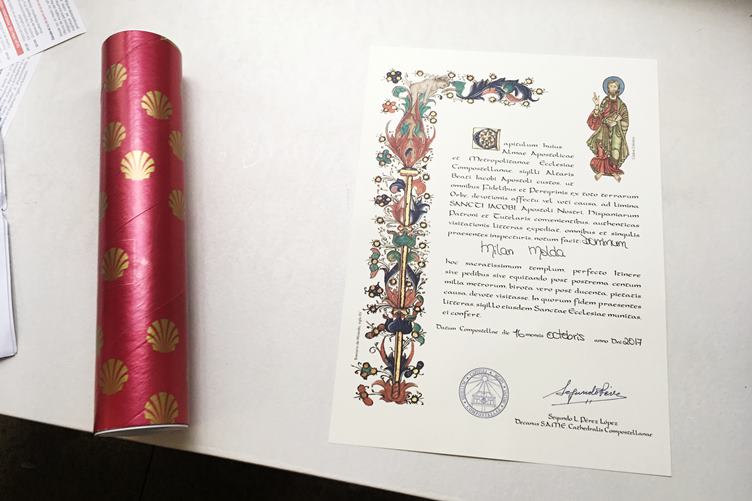 Capitulum huius
Almae Apostolicae
et Metropolitanae Ecclesiae
Compostellanae, sigilli Altaris
Beati Iacobi Apostoli custos, ut
omnibus Fidelibus et Peregrinis ex toto terrarum
Orbe, devotionis affectu vel voti causa, ad limina
SANCTI IACOBI, Apostoli Nostri, Hispaniarum
Patroni et Tutelaris convenientibus, authenticas
visitationis litteras expediat, omnibus et singulis
praesentes inspecturis, notum facit: Dominum
Milan Melda
hoc sacratissimum templum, perfecto Itinere
sive pedibus sive equitando post postrema centum
milia metrorum, birota vero post ducenta, pietatis
causa, devote visitasse. In quorum fidem praesentes
litteras, sigillo eiusdem Sanctae Ecclesiae munitas,
ei confert.
Datum Compostellae die 16 mensis octobris anno Dni 2017
Segundo L. Pérez López
Decanus S.A.M.E. Cathedralis Compostellanae